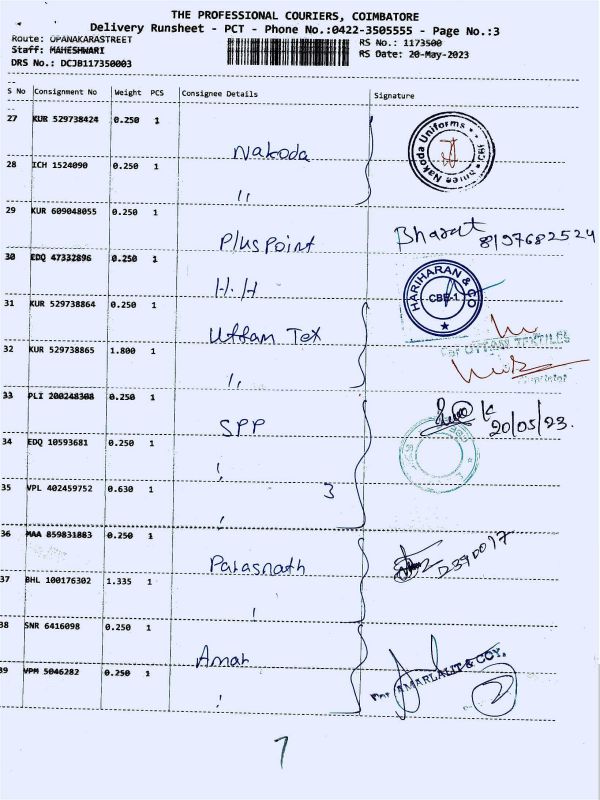 THE PROFESSIONAL COURIERS, COIMBATORE
Delivery Runsheet - PCT - Phone No.:0422-3505555 - Page No.:3
Route: OPANAKARASTREET
RS No.: 1173500
Staff: MAHESHWARI
RS Date: 20-May-2023
DRS No.: DCJB117350003
S No Consignment No Weight PCS Consignee Details Signature
27 KUR 529738424 0.250 1 Nakoda
Shree Nakoda Uniforms CBE
28 ICH 1524090 0.250 1 ,,
29 KUR 609048055 0.250 1 Plus Point Bharat 8197682524
30 EDQ 47332896 0.250 1 H.H
HARIHARAN & CO
CBE-1
31 KUR 529738864 0.250 1 Uttam Tex
For UTTAM TEXTILES
32 KUR 529738865 1.800 1 ,,
33 PLI 200248308 0.250 1 SPP
20/05/23.
34 EDQ 10593681 0.250 1
35 VPL 402459752 0.630 1 3
36 MAA 859831883 0.250 1 Parasnath
37 BHL 100176302 1.335 1
38 SNR 6416098 0.250 1 Amar
For AMARLALIT & COY.
39 VPM 5046282 0.250 1
2
7